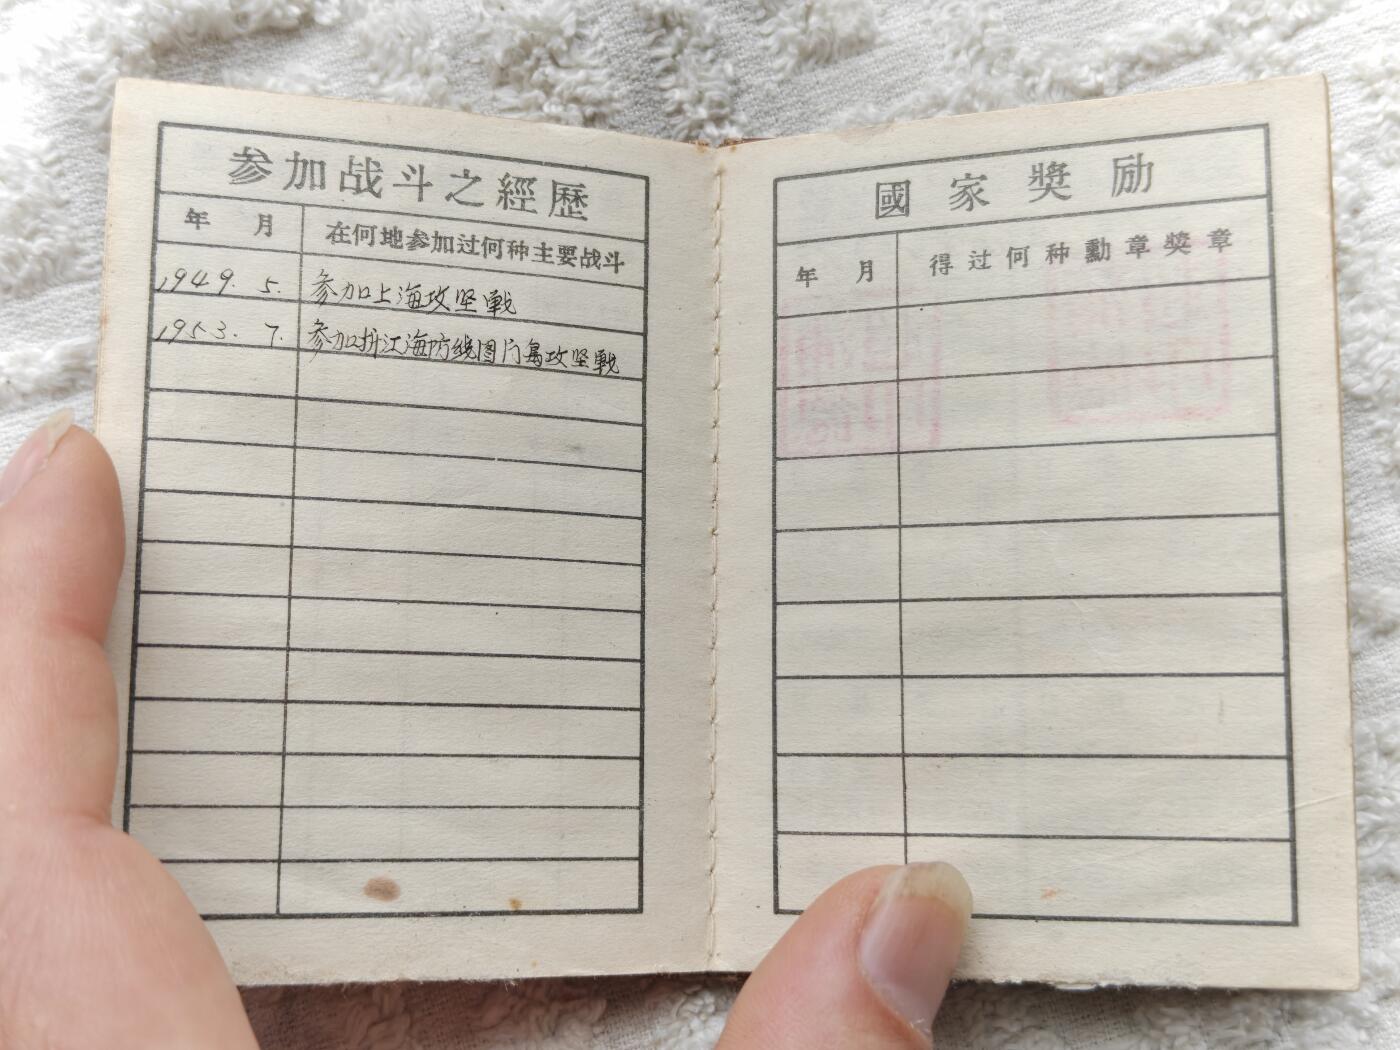 参加战斗之經歷
年 月 在何地参加过何种主要战斗
1949. 5. 参加上海攻坚戰
1953. 7. 参加浙江海防线图门島攻坚戰
國家獎励
年 月 得过何种勳章獎章